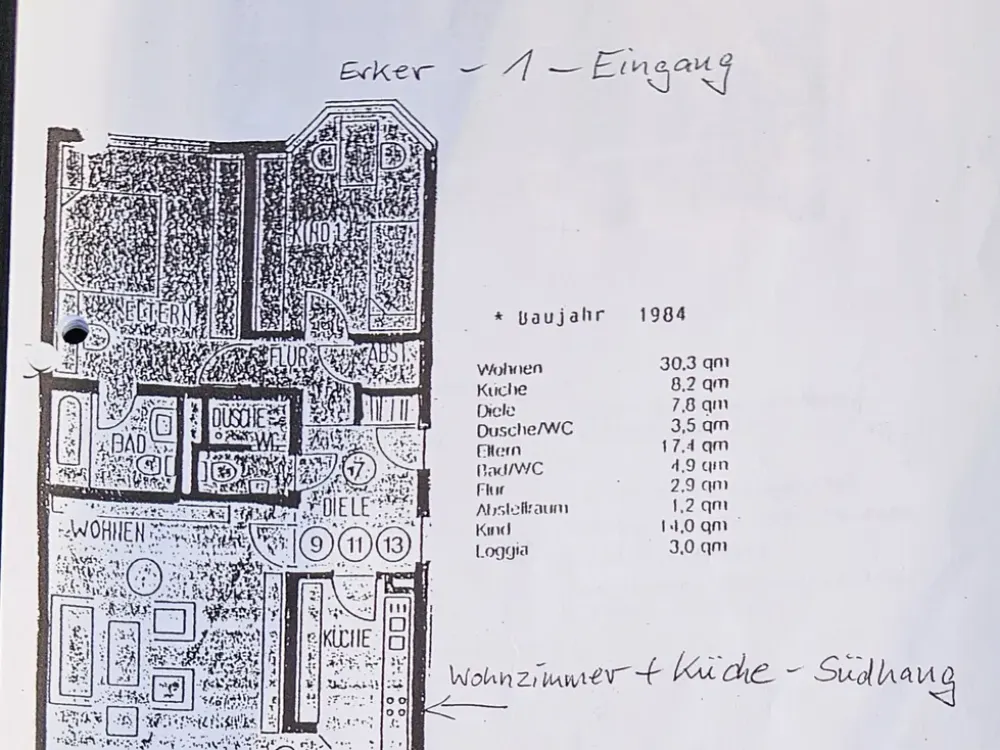 Erker - 1 - Eingang
KIND 1
ELTERN
FLUR ABST.
DUSCHE
WC
BAD
7
DIELE
WOHNEN
9 11 13
KÜCHE
* Baujahr 1984
Wohnen 30,3 qm
Küche 8,2 qm
Diele 7,8 qm
Dusche/WC 3,5 qm
Eltern 17,4 qm
Bad/WC 4,9 qm
Flur 2,9 qm
Abstellraum 1,2 qm
Kind 14,0 qm
Loggia 3,0 qm
Wohnzimmer + Küche - Südhang